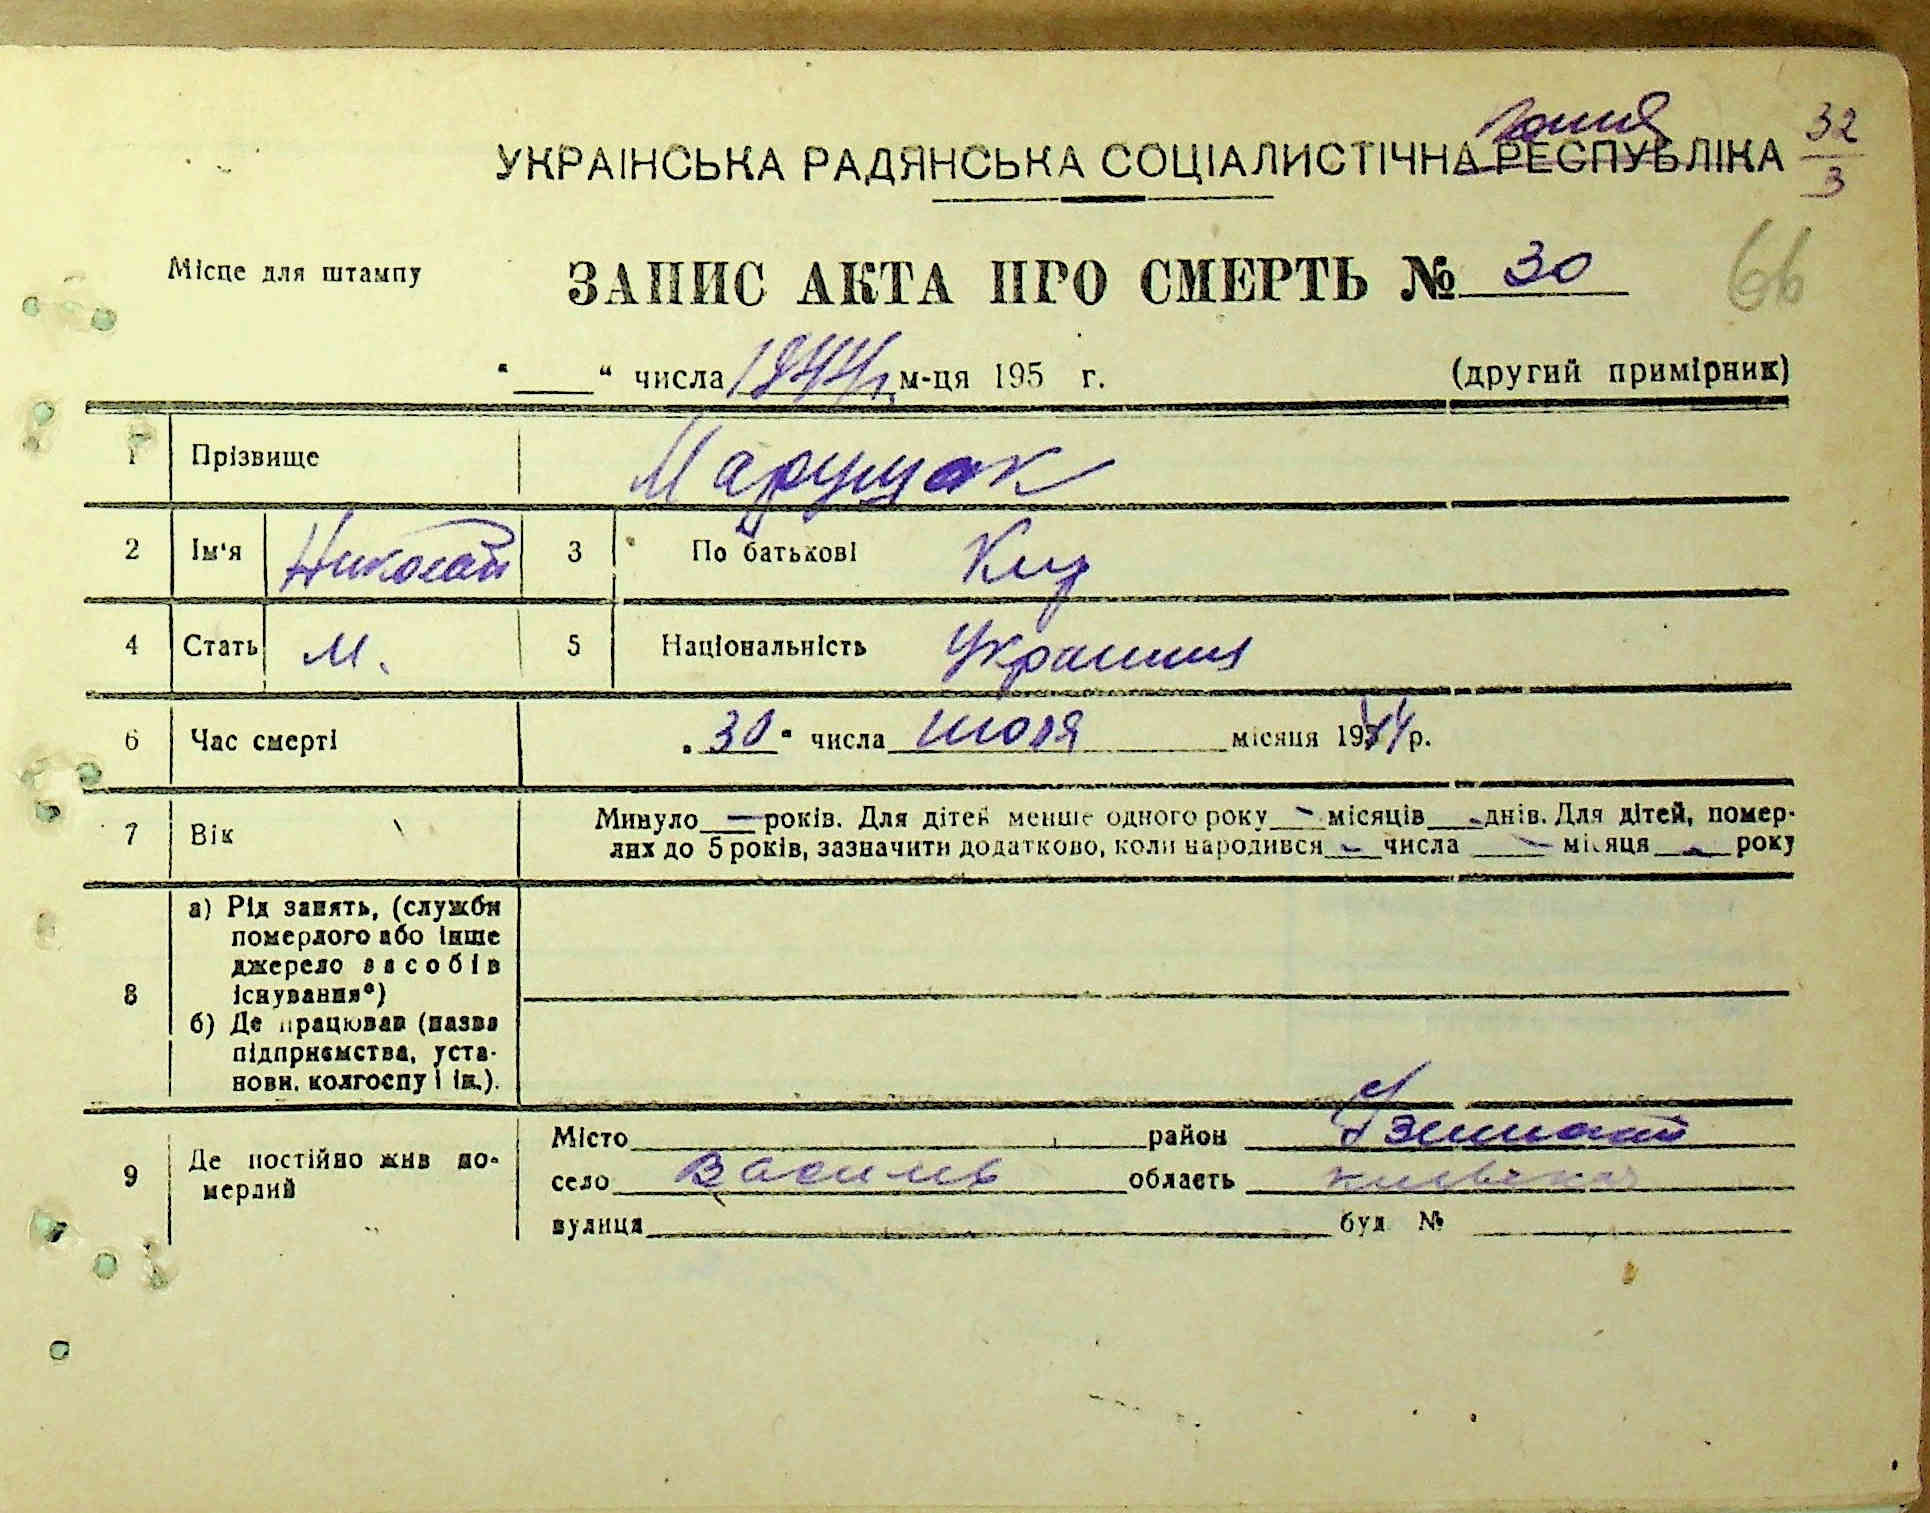 копия
32
3
УКРАІНСЬКА РАДЯНСЬКА СОЦІАЛИСТІЧНА РЕСПУБЛІКА
Місце для штампу
ЗАПИС АКТА ПРО СМЕРТЬ № 30
66
"___" числа 1944г. м-ця 195 г. (другий примірник)
1 Прізвище Марущак
2 Ім'я Николай 3 По батькові Кир
4 Стать М. 5 Національність Украинец
6 Час смерті "30" числа июля місяця 1944 р.
7 Вік Минуло — років. Для дітей менше одного року - місяців - днів. Для дітей, помер-
лих до 5 років, зазначити додатково, коли народився - числа - місяця - року
8 а) Рід занять, (служби
померлого або інше
джерело засобів
існування*)
б) Де працював (назва
підприємства, уста-
нови, колгоспу і ін.).
9 Де постійно жив по-
мерлий
Місто район Узинский
село Василев область киевская
вулиця буд №